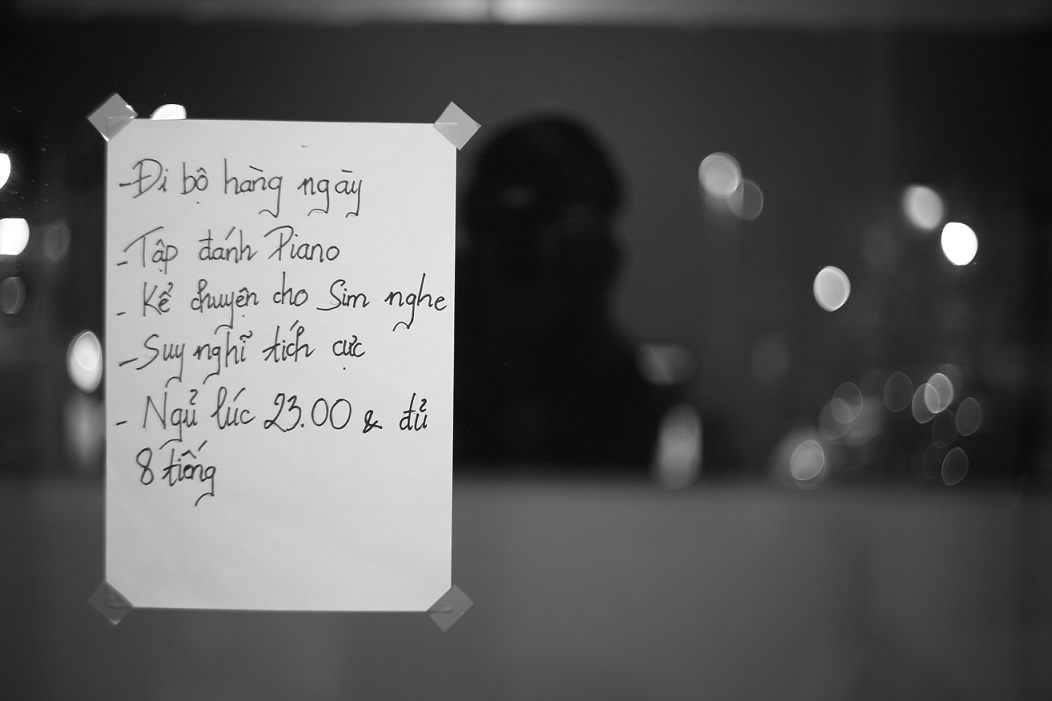 - Đi bộ hàng ngày
- Tập đánh Piano
- Kể chuyện cho Sim nghe
- Suy nghĩ tích cực
- Ngủ lúc 23.00 & đủ
8 tiếng